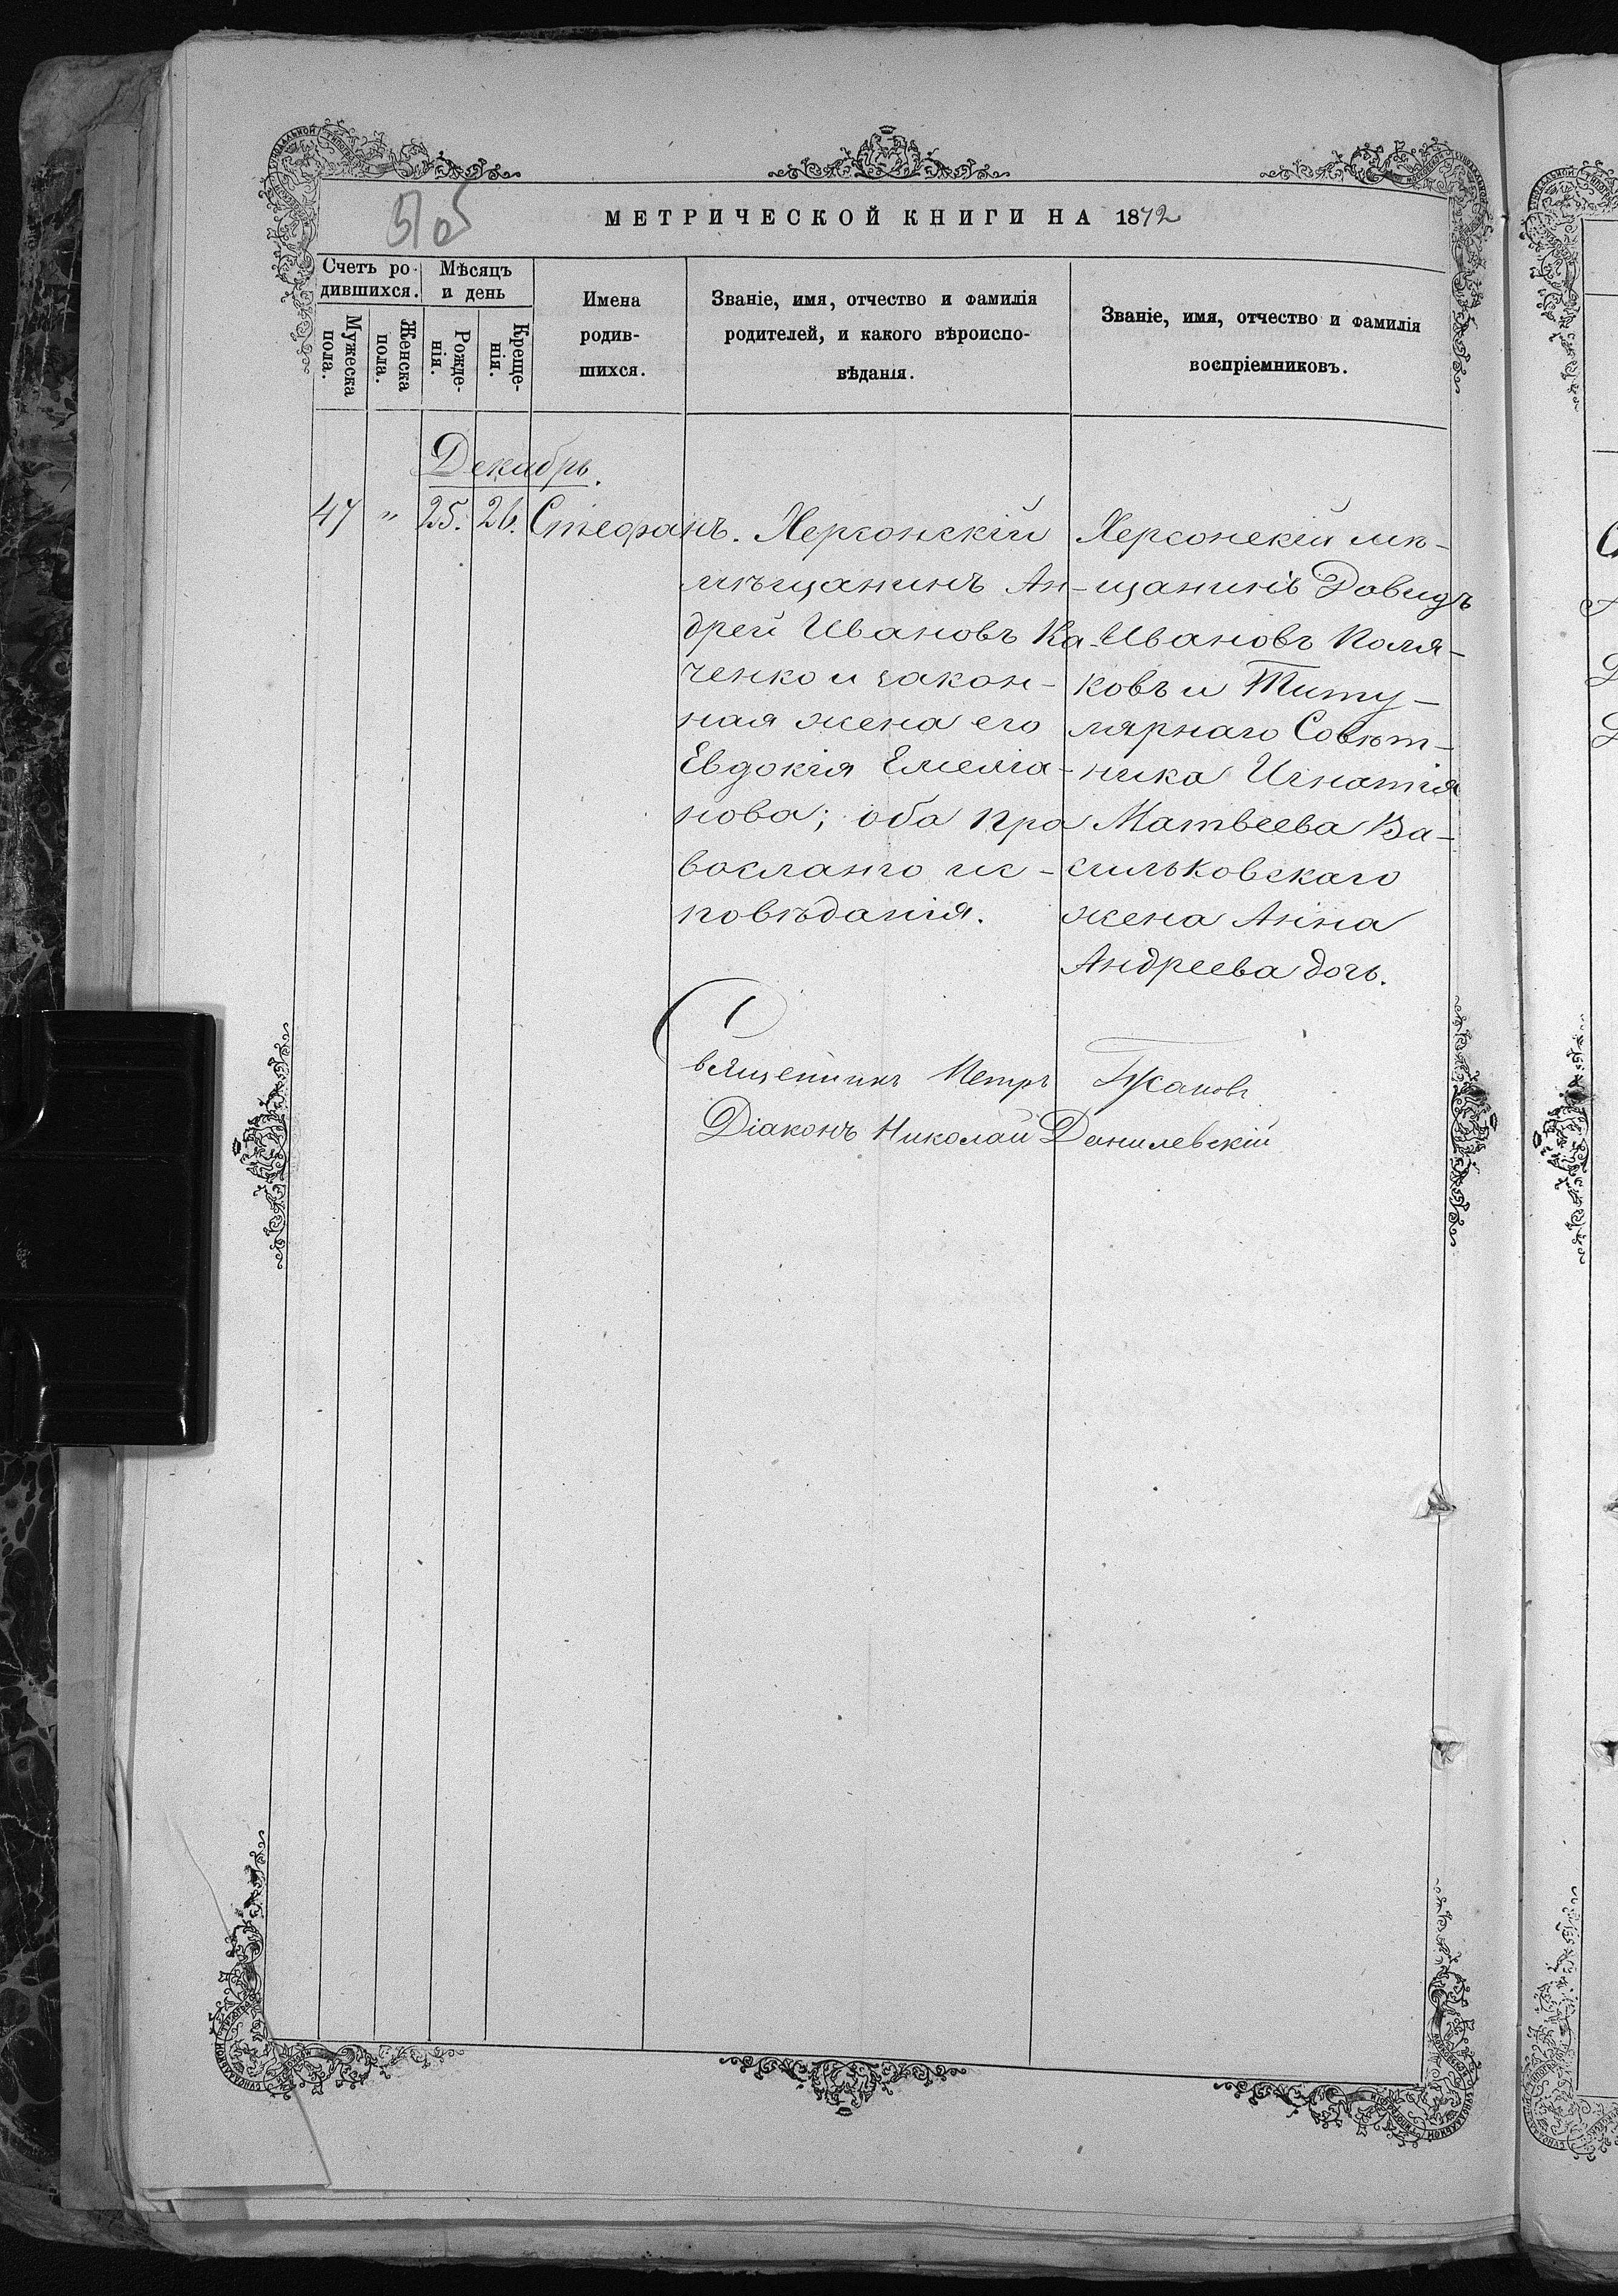 505
МЕТРИЧЕСКОЙ КНИГИ НА 1872
Счетъ ро-
дившихся.
Мужеска
пола.
Женска
пола.
Мѣсяцъ
и день
Рожде-
нія.
Креще-
нія.
Имена
родив-
шихся.
Званіе, имя, отчество и фамилія
родителей, и какого вѣроиспо-
вѣданія.
Званіе, имя, отчество и фамилія
воспріемниковъ.
Декабрь.
47 " 25. 26. Стефанъ.
Херсонскій
мѣщанинъ Ан-
дрей Ивановъ Ка-
ченко и закон-
ная жена его
Евдокія Емелiа-
нова; оба пра
вославнго ис-
повѣданія.
Херсонскій мѣ-
щанинъ Давидъ
Ивановъ Поля-
ковъ и Титу-
лярнаго Совѣт-
ника Игнатія
Матвеева Ва-
сильковскаго
жена Анна
Андреева дочь.
Священникъ Петръ Гусаковъ
Діаконъ Николай Данилевскій